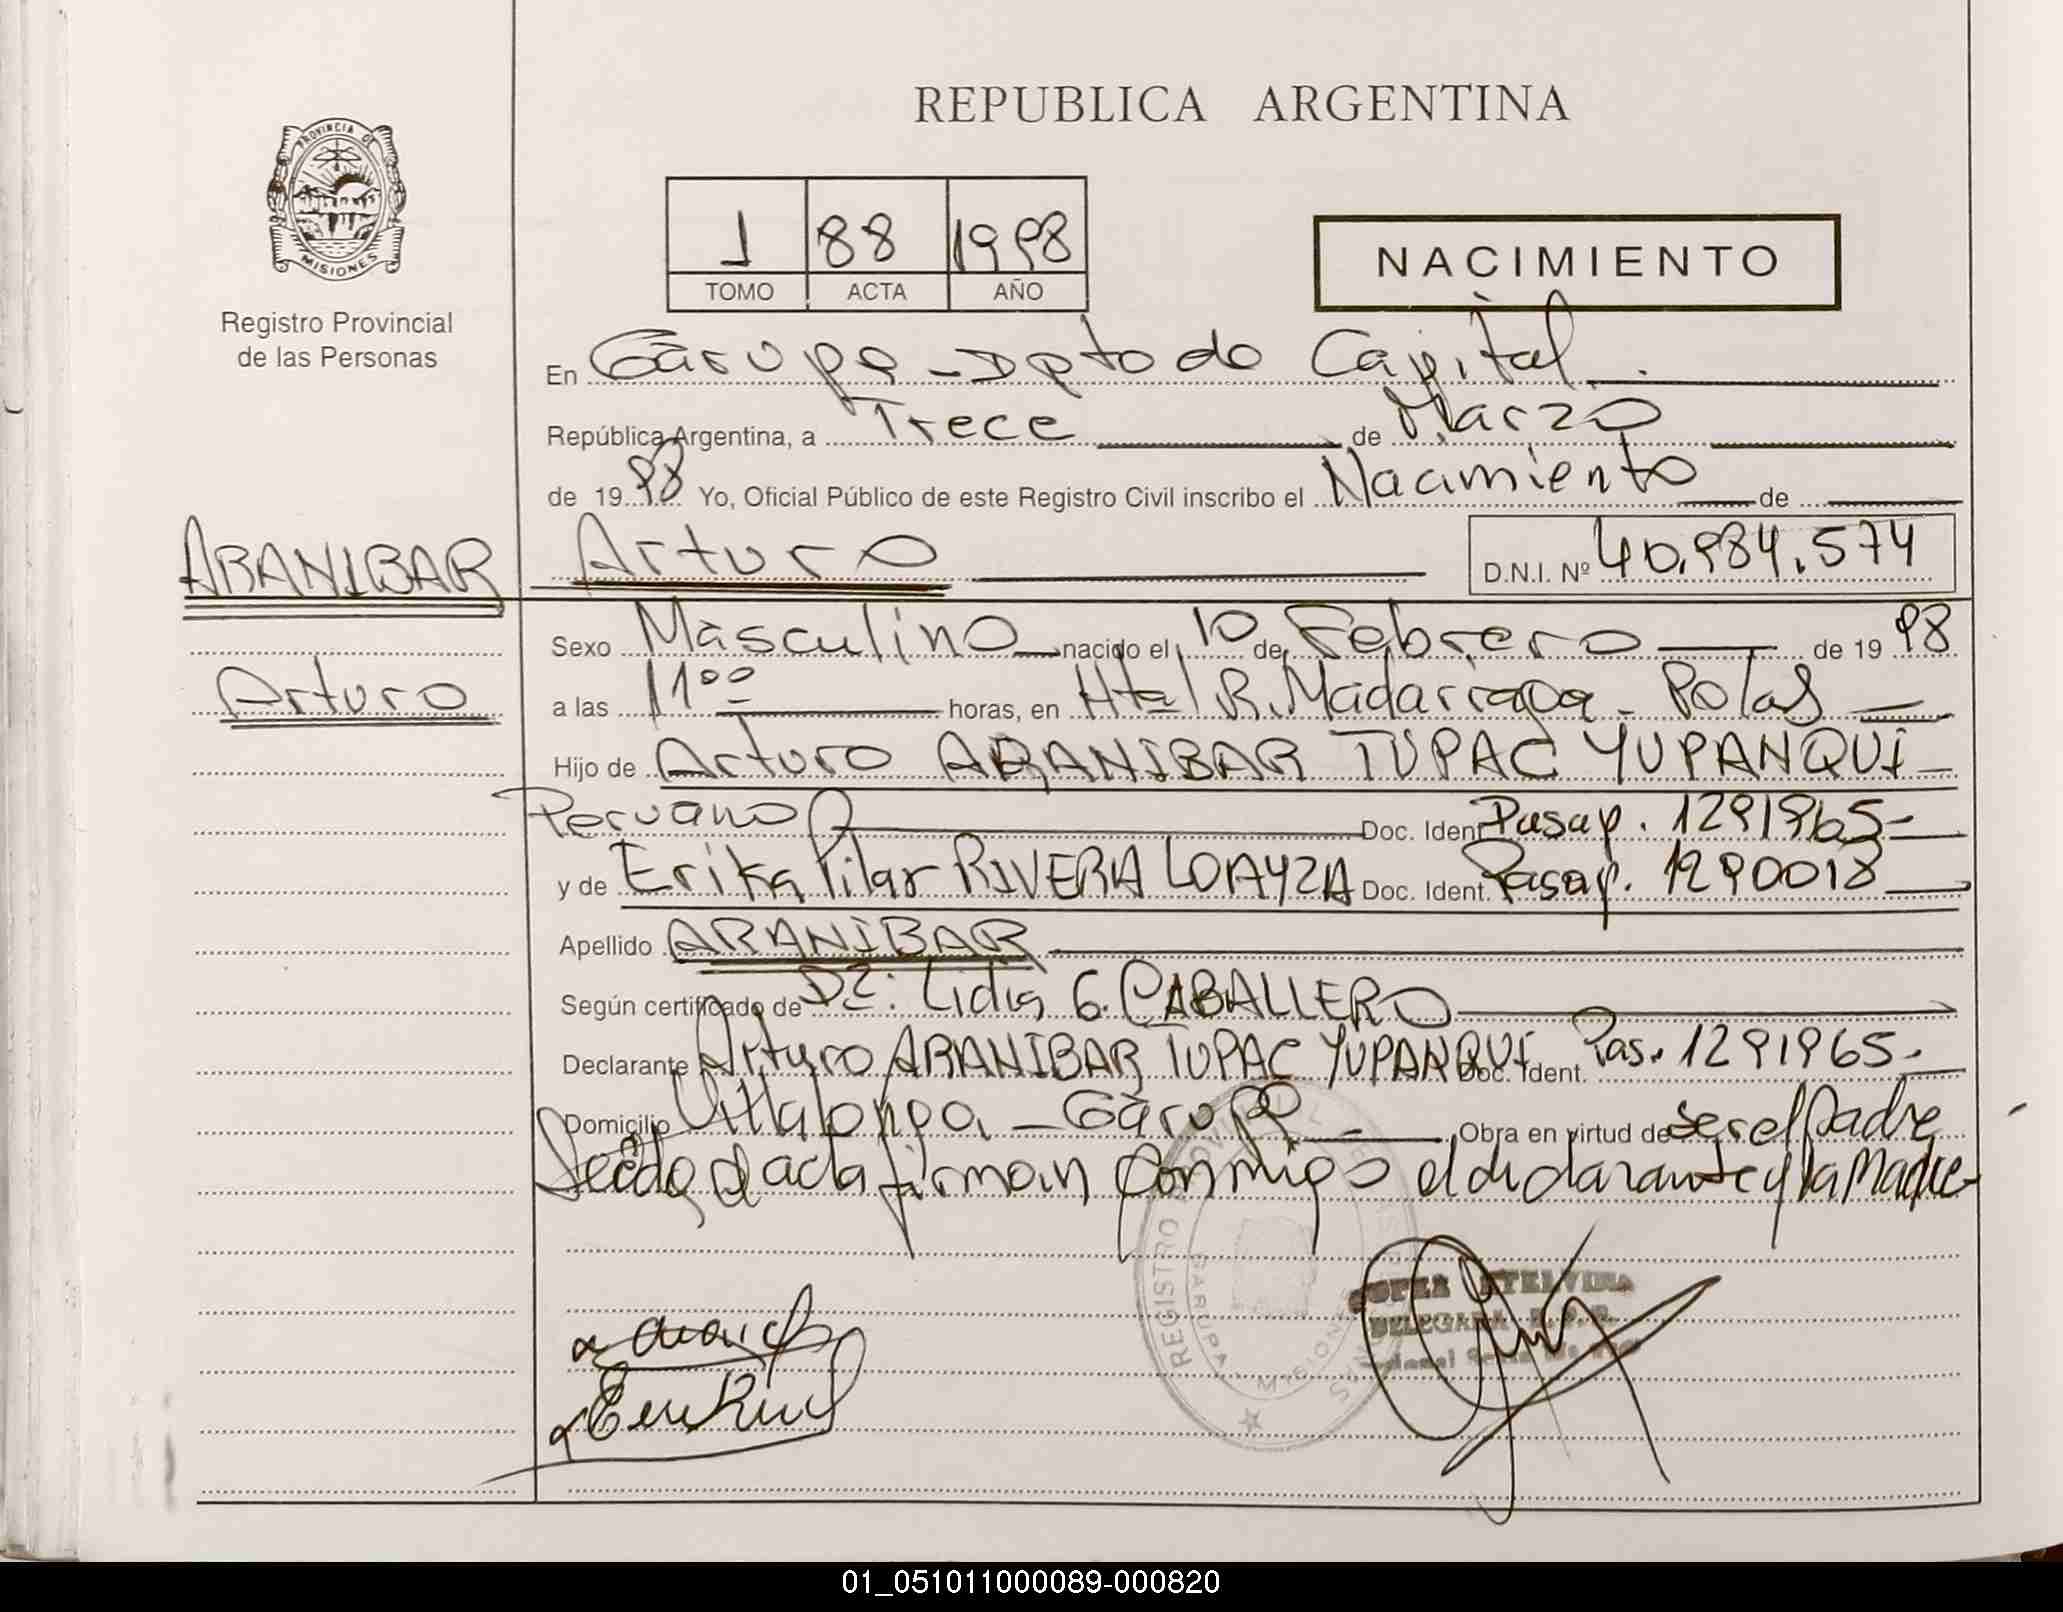 REPUBLICA ARGENTINA
PROVINCIA DE
MISIONES
Registro Provincial
de las Personas
1 88 1998
TOMO ACTA AÑO
NACIMIENTO
En Garupa - Dpto de Capital
República Argentina, a Trece de Marzo
de 1998 Yo, Oficial Público de este Registro Civil inscribo el Nacimiento de
ARANIBAR Arturo D.N.I. Nº 40.984.574
Sexo Masculino nacido el 10 de Febrero de 1998
Arturo
a las 11 00 horas, en Htal R. Madariaga - Pdas
Hijo de Arturo ARANIBAR TUPAC YUPANQUI
Peruano Doc. Ident. Pasap. 1291965-
y de Erika Pilar RIVERA LOAYZA Doc. Ident. Pasap. 1290018
Apellido ARANIBAR
Según certificado de Lidia G. CABALLERO
Declarante Arturo ARANIBAR TUPAC YUPANQUI Doc. Ident. Pas. 1291965-
Domicilio Villalonga - Garupa Obra en virtud de ser el Padre
Leída el acta firman conmigo el declarante y la Madre
REGISTRO
GARUPA
MISIONES
ETELVINA
DELEGADA
01_051011000089-000820